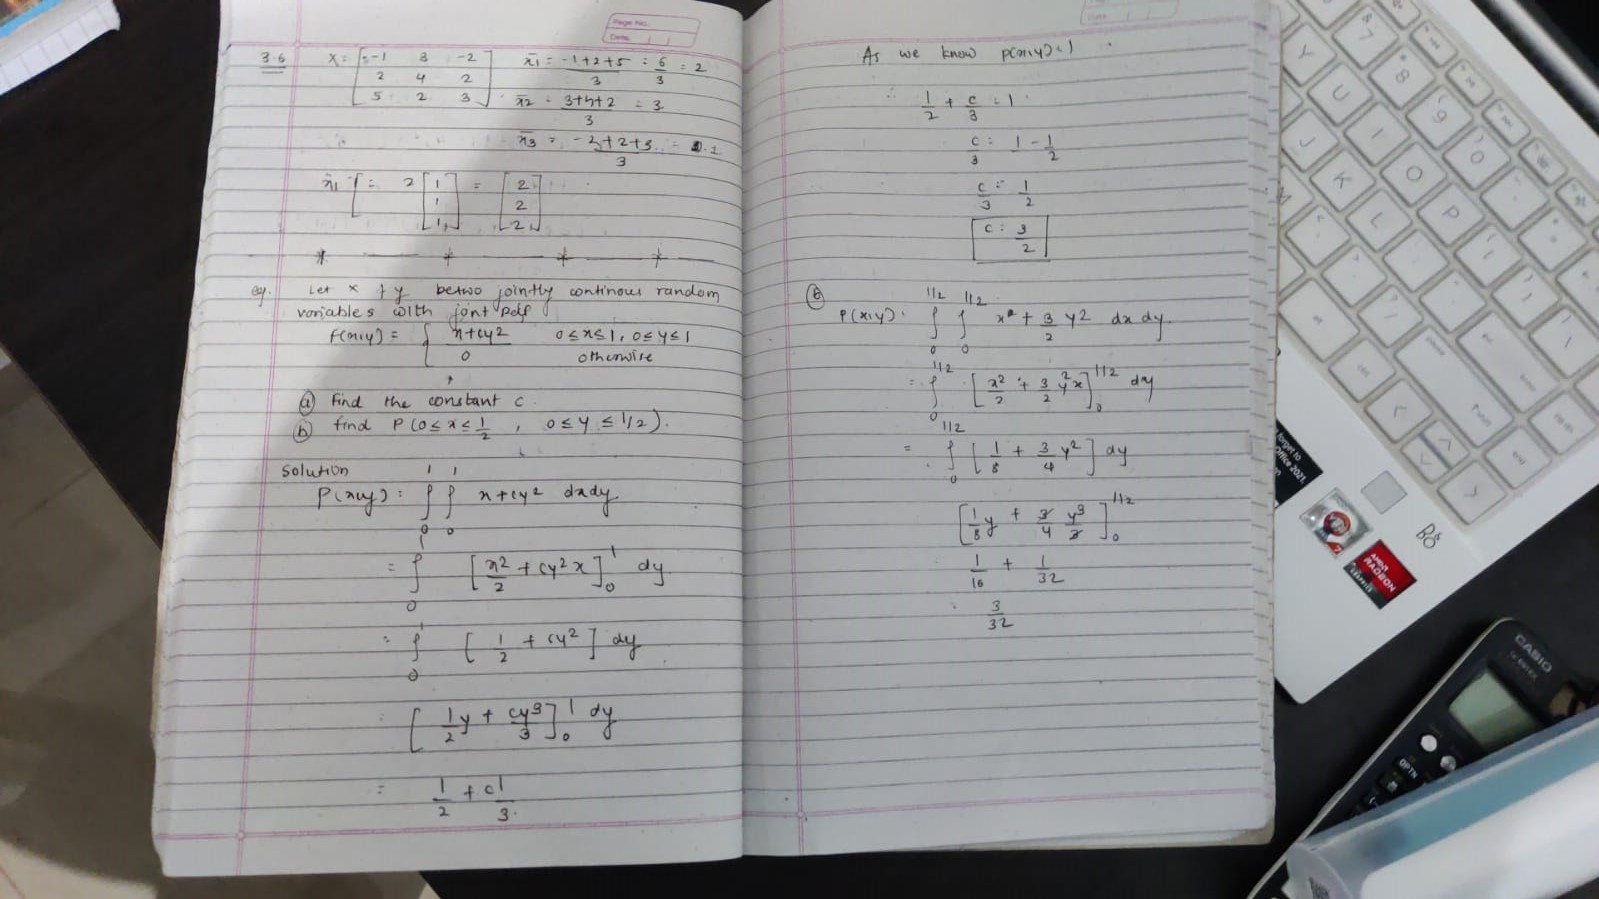 Page No.
Date
3.6 X = [ -1 3 -2 x̄1 = -1+2+5/3 = 6/3 = 2
2 4 2
5 2 3 ] x̄2 = 3+4+2/3 = 3
x̄3 = -2+2+3/3 = 1
x̄1 [ = 2 [1 1 1] = [2 2 2]
eg. Let x & y be two jointly continous random
variables with jont pdf
f(x,y) = { x+cy² 0≤x≤1, 0≤y≤1
0 otherwise
(a) find the constant c.
(b) find P(0≤x≤1/2, 0≤y≤1/2).
Solution
P(x,y) : ∫₀¹ ∫₀¹ x+cy² dxdy
= ∫₀¹ [x²/2 + cy²x]₀¹ dy
= ∫₀¹ [1/2 + cy²] dy
= [1/2 y + cy³/3]₀¹ dy
= 1/2 + c1/3.
Date
As we know p(x,y)=1
∴ 1/2 + c/3 = 1
c/3 = 1 - 1/2
c/3 = 1/2
c = 3/2
(b)
P(x,y) = ∫₀^1/2 ∫₀^1/2 x + 3/2 y² dx dy
= ∫₀^1/2 [x²/2 + 3/2 y²x]₀^1/2 dy
= ∫₀^1/2 [1/8 + 3/4 y²] dy
[1/8 y + 3/4 y³/3]₀^1/2
1/16 + 1/32
3/32
forget to
Office 2021
AMD
RADEON
CASIO
OPTN